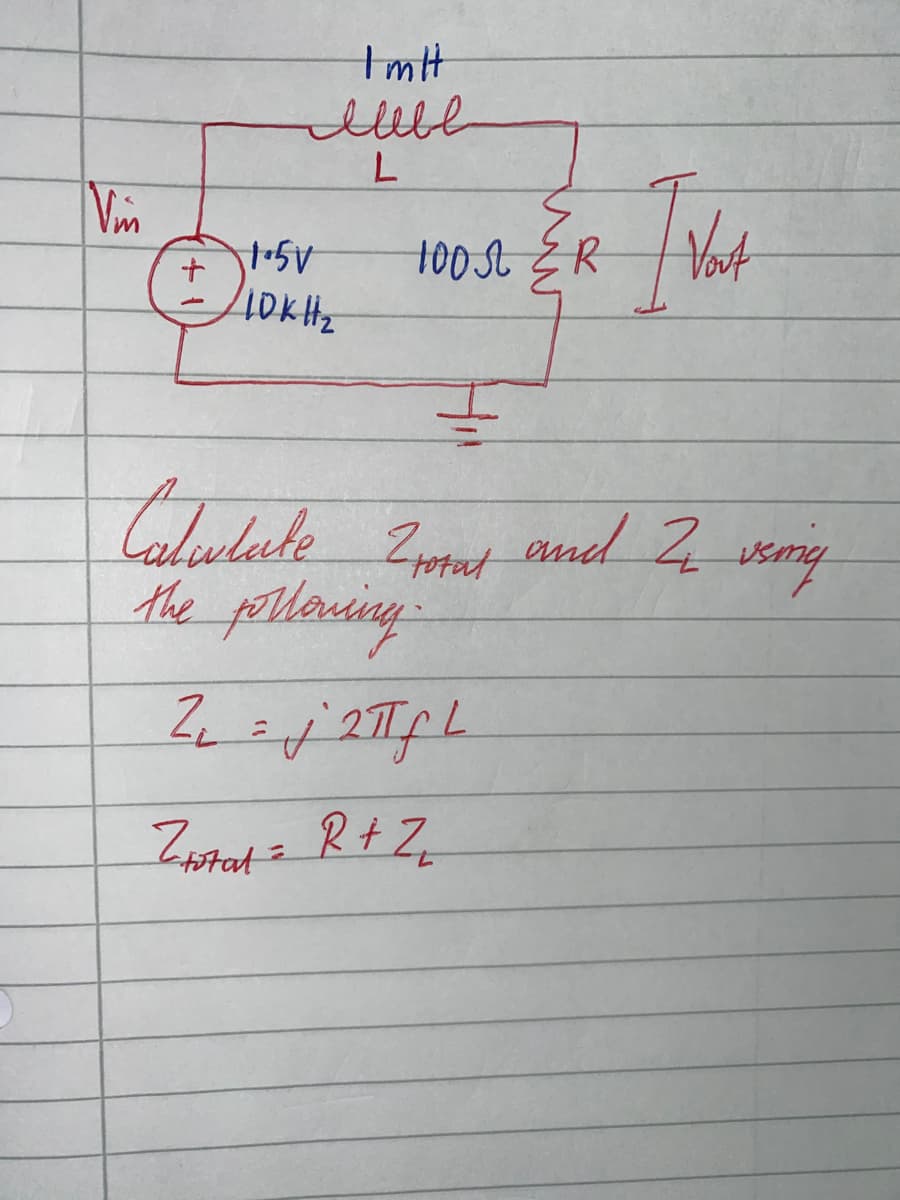 1mH
L
Vin
+
-
1.5V
10KHz
100Ω
R
Vout
Calculate Ztotal and ZL using
the following:
ZL = j2πfL
Ztotal = R + ZL